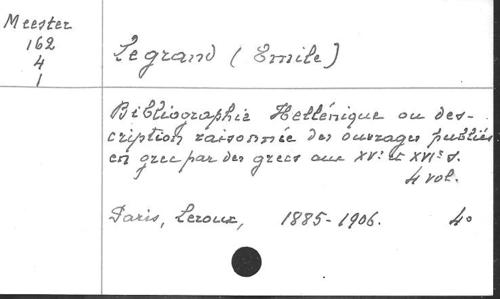 Meester
162
4
1
Legrand (Emile)
Bibliographie Hellénique ou des-
cription raisonnée des ouvrages publiés
en grec par des grecs aux XVe et XVIe s.
4 vol.
Paris, Leroux, 1885-1906. 4o